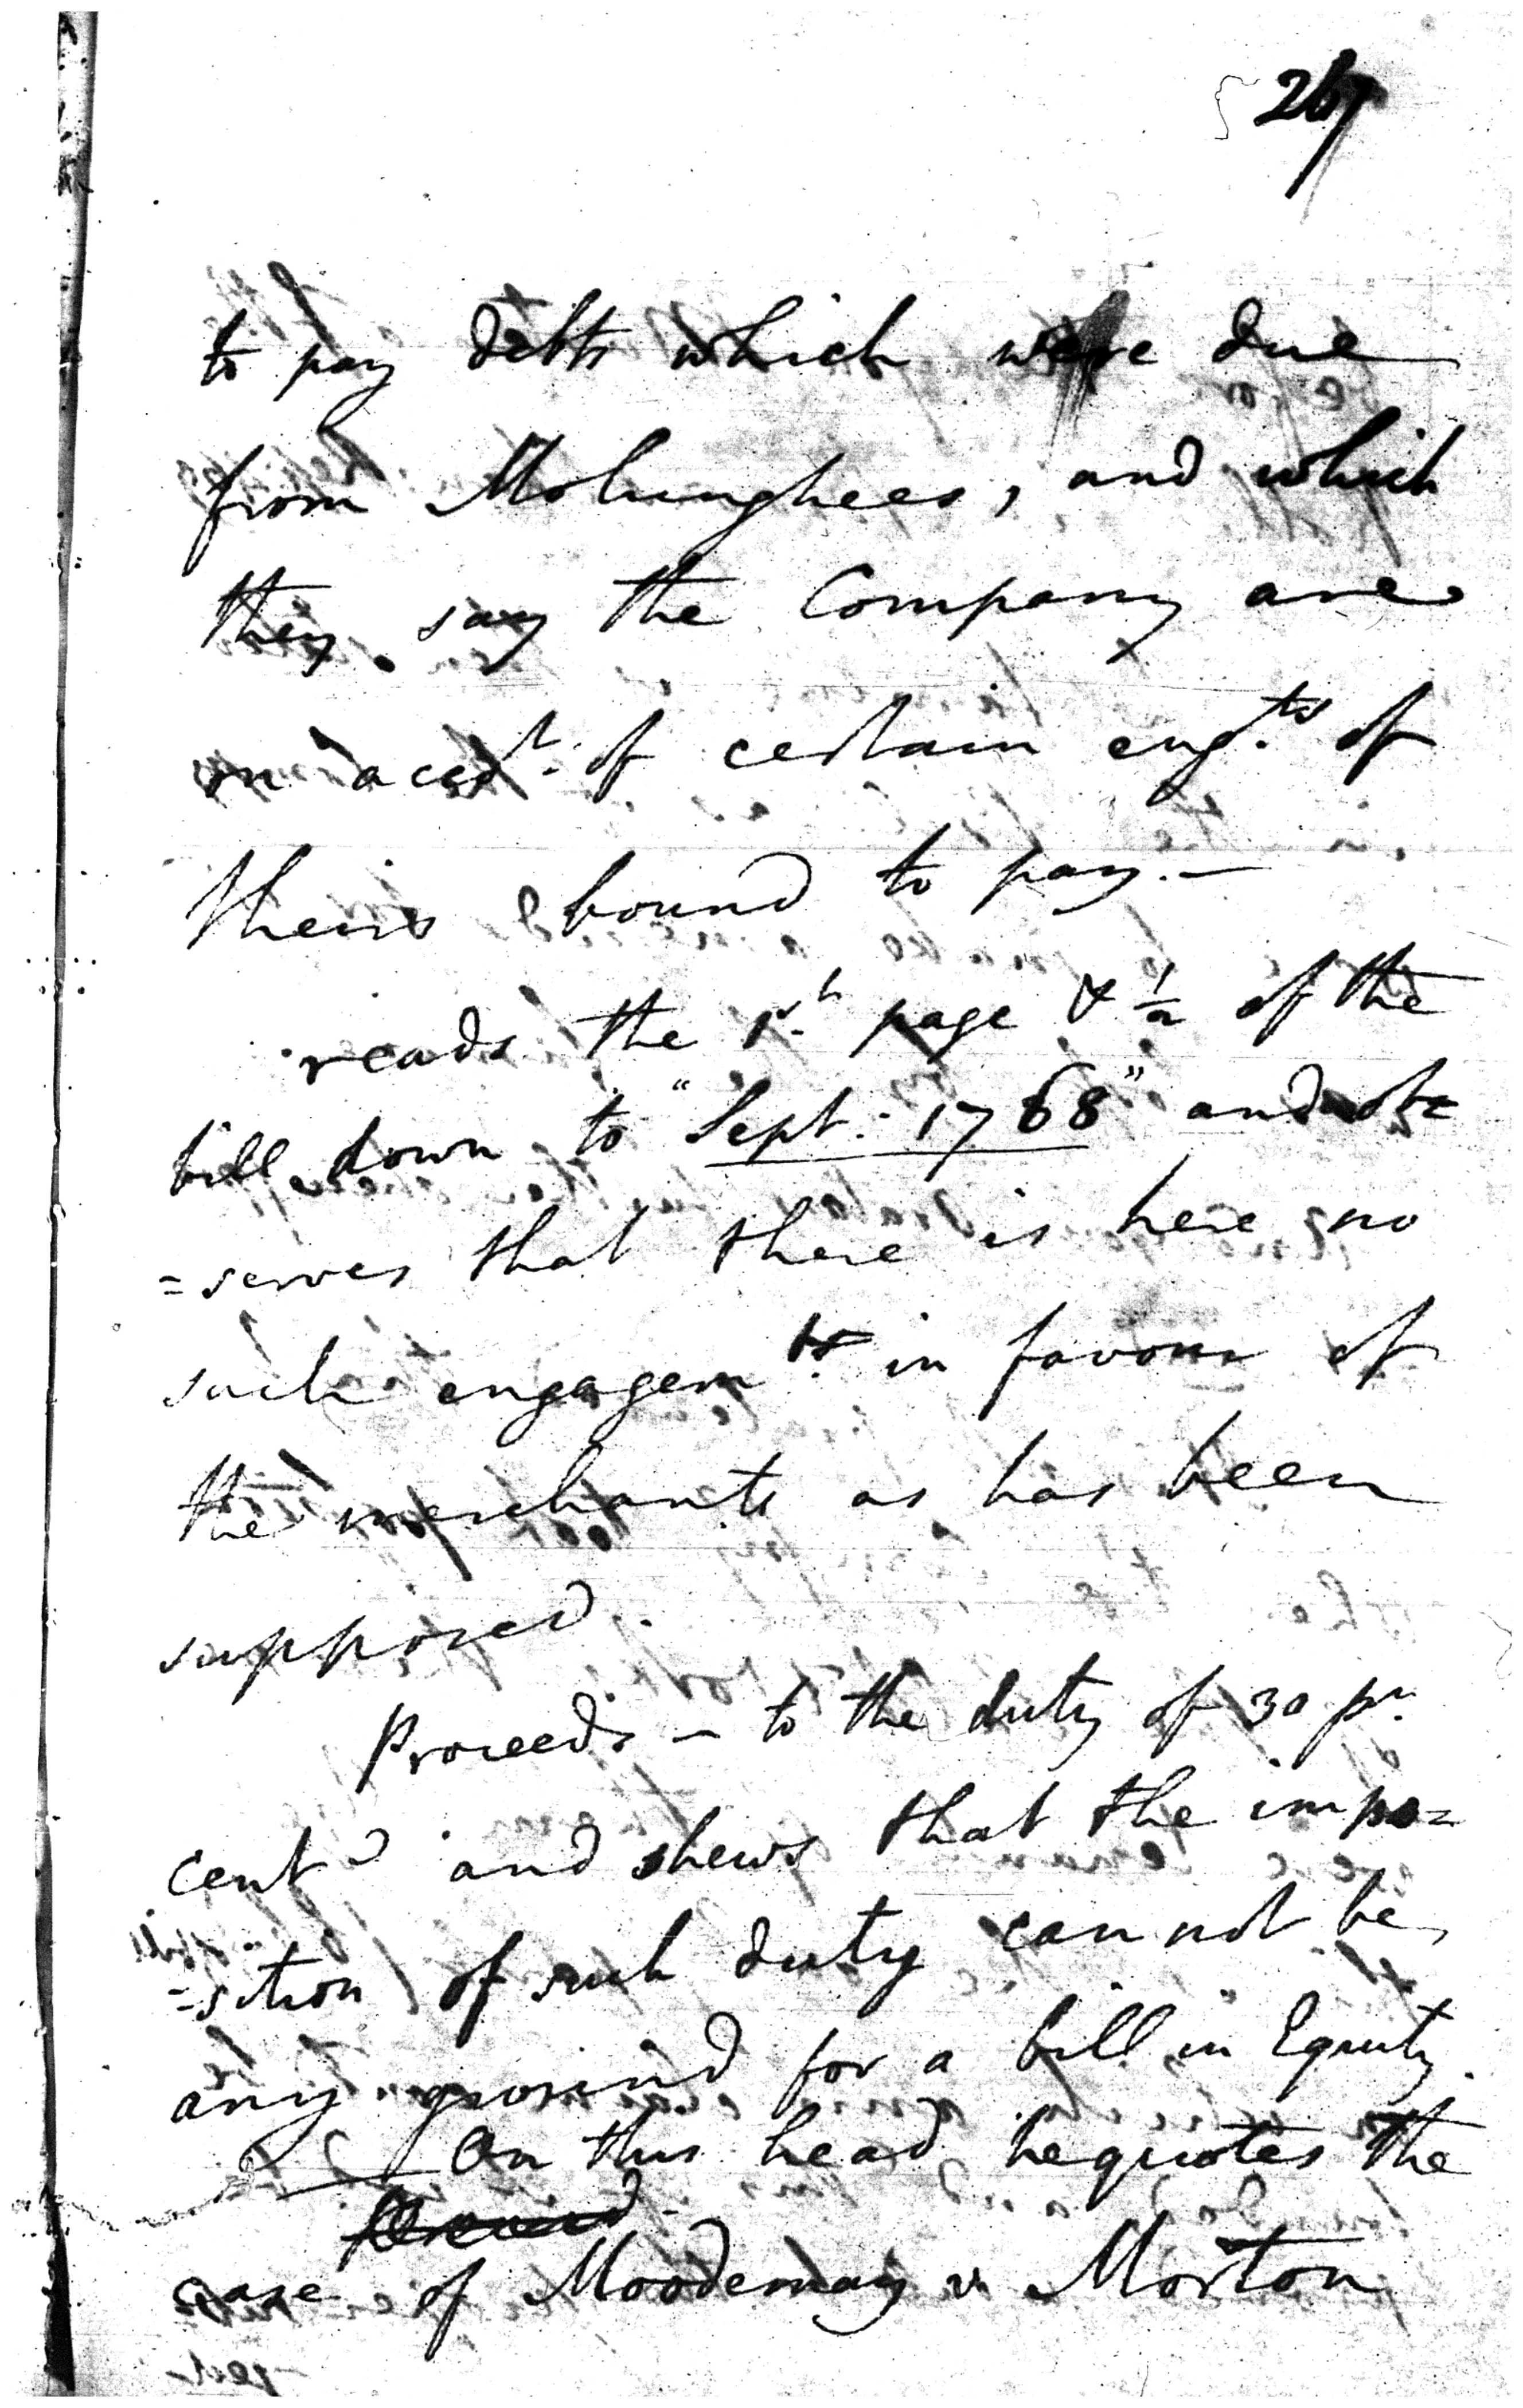 267
to pay debts which were due
from Molunghees, and which
they say the Company are
on accot. of certain engts. of
theirs bound to pay.—
reads the 1st. page & ½ of the
bill down to "Sept. 1768" and ob=
=serves that there is here no
such engagemts. in favour of
the merchants as has been
supposed.
Proceeds – to the duty of 30 pr.
cent and shews that the impo=
=sition of such duty cannot be
any ground for a bill in Equity.
On this head he quotes the
case of Moodemay v. Morton